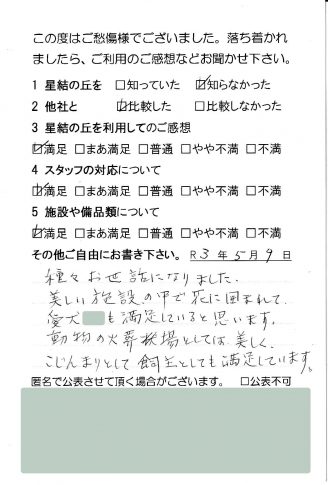 この度はご愁傷様でございました。落ち着かれ
ましたら、ご利用のご感想などお聞かせ下さい。
1 星結の丘を □知っていた ☑知らなかった
2 他社と ☑比較した □比較しなかった
3 星結の丘を利用してのご感想
☑満足 □まあ満足 □普通 □やや不満 □不満
4 スタッフの対応について
☑満足 □まあ満足 □普通 □やや不満 □不満
5 施設や備品類について
☑満足 □まあ満足 □普通 □やや不満 □不満
その他ご自由にお書き下さい。 R3 年 5月 9 日
種々お世話になりました。
美しい施設の中で花に囲まれて、
愛犬 も満足していると思います。
動物の火葬場としては美しく、
こじんまりとして飼主としても満足しています。
匿名で公表させて頂く場合がございます。 □公表不可